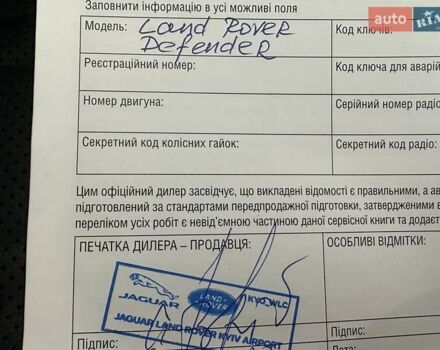 Заповнити інформацію в усі можливі поля
auto RIA
Модель: Land Rover
Defender
Код ключів:
Реєстраційний номер:
Код ключа для аварій
Номер двигуна:
Серійний номер радіо
Секретний код колісних гайок:
Секретний код радіо:
Цим офіційний дилер засвідчує, що викладені відомості є правильними, а ав
підготовлений за стандартами передпродажної підготовки, затвердженими в
переліком усіх робіт є невід'ємною частиною даної сервісної книги та додаєт
ПЕЧАТКА ДИЛЕРА – ПРОДАВЦЯ:
ОСОБЛИВІ ВІДМІТКИ:
JAGUAR
LAND ROVER
KYO_WLC
JAGUAR LAND ROVER KYIV AIRPORT
Підпис:
Підпис:
Дата: